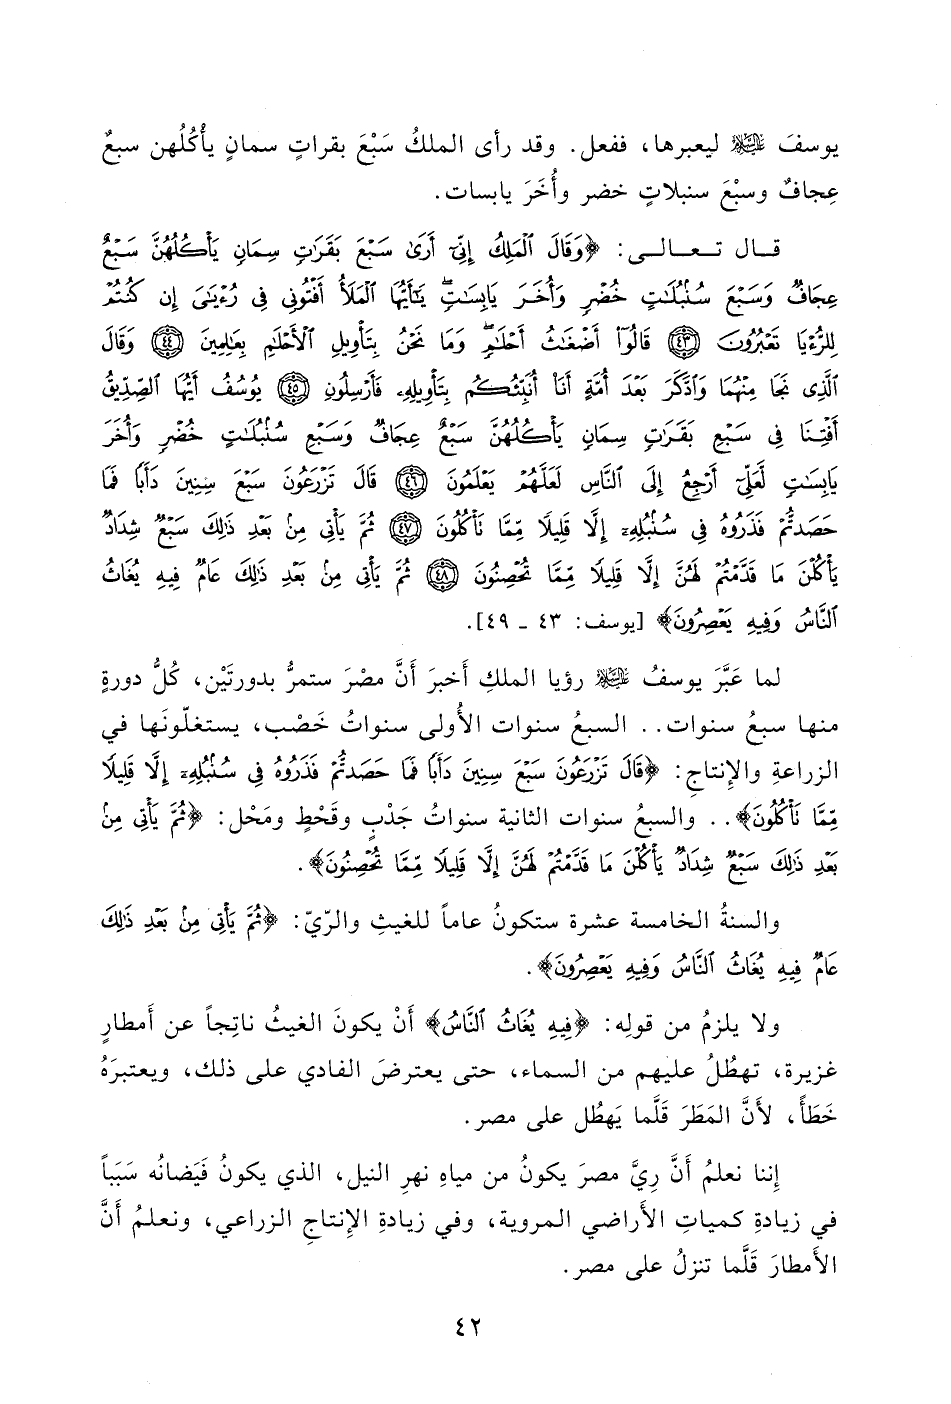 يوسفَ عليه السلام ليعبرها، ففعل. وقد رأى الملكُ سَبْعَ بقراتٍ سمانٍ يأْكُلُهن سبعٌ
عِجافٌ وسبْعَ سنبلاتٍ خضر وأُخَرَ يابسات.
قـال تـعـالـى: ﴿وَقَالَ ٱلْمَلِكُ إِنِّىٓ أَرَىٰ سَبْعَ بَقَرَٰتٍ سِمَانٍ يَأْكُلُهُنَّ سَبْعٌ
عِجَافٌ وَسَبْعَ سُنۢبُلَٰتٍ خُضْرٍ وَأُخَرَ يَابِسَٰتٍۖ يَٰٓأَيُّهَا ٱلْمَلَأُ أَفْتُونِى فِى رُءْيَٰىَ إِن كُنتُمْ
لِلرُّءْيَا تَعْبُرُونَ ٤٣ قَالُوٓا۟ أَضْغَٰثُ أَحْلَٰمٍۖ وَمَا نَحْنُ بِتَأْوِيلِ ٱلْأَحْلَٰمِ بِعَٰلِمِينَ ٤٤ وَقَالَ
ٱلَّذِى نَجَا مِنْهُمَا وَٱدَّكَرَ بَعْدَ أُمَّةٍ أَنَا۠ أُنَبِّئُكُم بِتَأْوِيلِهِۦ فَأَرْسِلُونِ ٤٥ يُوسُفُ أَيُّهَا ٱلصِّدِّيقُ
أَفْتِنَا فِى سَبْعِ بَقَرَٰتٍ سِمَانٍ يَأْكُلُهُنَّ سَبْعٌ عِجَافٌ وَسَبْعِ سُنۢبُلَٰتٍ خُضْرٍ وَأُخَرَ
يَابِسَٰتٍ لَّعَلِّىٓ أَرْجِعُ إِلَى ٱلنَّاسِ لَعَلَّهُمْ يَعْلَمُونَ ٤٦ قَالَ تَزْرَعُونَ سَبْعَ سِنِينَ دَأَبًا فَمَا
حَصَدتُّمْ فَذَرُوهُ فِى سُنۢبُلِهِۦٓ إِلَّا قَلِيلًا مِّمَّا تَأْكُلُونَ ٤٧ ثُمَّ يَأْتِى مِنۢ بَعْدِ ذَٰلِكَ سَبْعٌ شِدَادٌ
يَأْكُلْنَ مَا قَدَّمْتُمْ لَهُنَّ إِلَّا قَلِيلًا مِّمَّا تُحْصِنُونَ ٤٨ ثُمَّ يَأْتِى مِنۢ بَعْدِ ذَٰلِكَ عَامٌ فِيهِ يُغَاثُ
ٱلنَّاسُ وَفِيهِ يَعْصِرُونَ﴾ [يوسف: ٤٣ ـ ٤٩].
لما عَبَّرَ يوسفُ عليه السلام رؤيا الملكِ أَخبرَ أَنَّ مصْرَ ستمرُّ بدورتَيْن، كُلُّ دورةٍ
منها سبعُ سنوات.. السبعُ سنوات الأُولى سنواتُ خَصْب، يستغلّونَها في
الزراعةِ والإِنتاج: ﴿قَالَ تَزْرَعُونَ سَبْعَ سِنِينَ دَأَبًا فَمَا حَصَدتُّمْ فَذَرُوهُ فِى سُنۢبُلِهِۦٓ إِلَّا قَلِيلًا
مِّمَّا تَأْكُلُونَ﴾.. والسبعُ سنوات الثانية سنواتُ جَدْبٍ وقَحْطٍ ومَحْل: ﴿ثُمَّ يَأْتِى مِنۢ
بَعْدِ ذَٰلِكَ سَبْعٌ شِدَادٌ يَأْكُلْنَ مَا قَدَّمْتُمْ لَهُنَّ إِلَّا قَلِيلًا مِّمَّا تُحْصِنُونَ﴾.
والسنةُ الخامسة عشرة ستكونُ عاماً للغيثِ والرّيّ: ﴿ثُمَّ يَأْتِى مِنۢ بَعْدِ ذَٰلِكَ
عَامٌ فِيهِ يُغَاثُ ٱلنَّاسُ وَفِيهِ يَعْصِرُونَ﴾.
ولا يلزمُ من قولِه: ﴿فِيهِ يُغَاثُ ٱلنَّاسُ﴾ أَنْ يكونَ الغيثُ ناتِجاً عن أَمطارٍ
غزيرة، تهطُلُ عليهم من السماء، حتى يعترضَ الفادي على ذلك، ويعتبرَهُ
خَطَأً، لأَنَّ المَطَرَ قَلَّما يَهطُل على مصر.
إِننا نعلمُ أَنَّ رِيَّ مصرَ يكونُ من مياهِ نهرِ النيل، الذي يكونُ فَيَضانُه سَبَباً
في زيادةِ كمياتِ الأَراضي المروية، وفي زيادةِ الإِنتاجِ الزراعي، ونعلمُ أَنَّ
الأَمطارَ قَلَّما تنزلُ على مصر.
٤٢